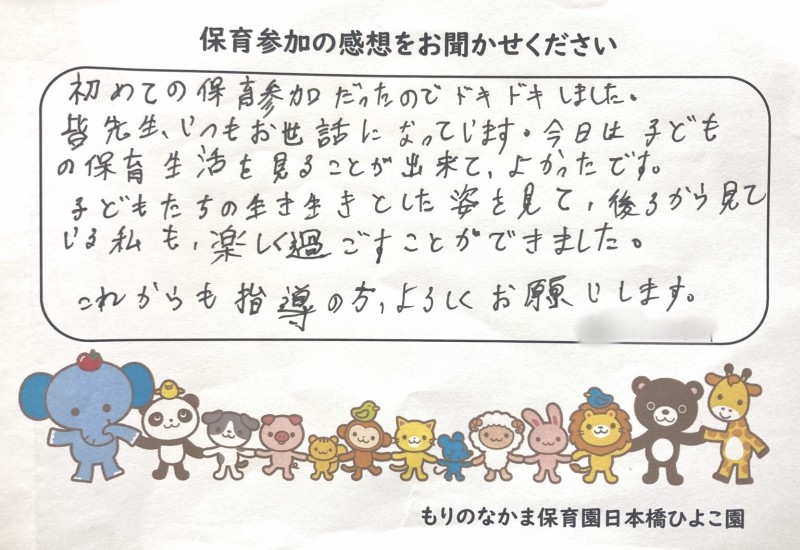 保育参加の感想をお聞かせください
初めての保育参加だったのでドキドキしました。
皆先生、いつもお世話になっています。今日は子ども
の保育生活を見ることが出来て、よかったです。
子どもたちの生き生きとした姿を見て、後ろから見て
いる私も、楽しく過ごすことができました。
これからも指導の方、よろしくお願いします。
もりのなかま保育園日本橋ひよこ園